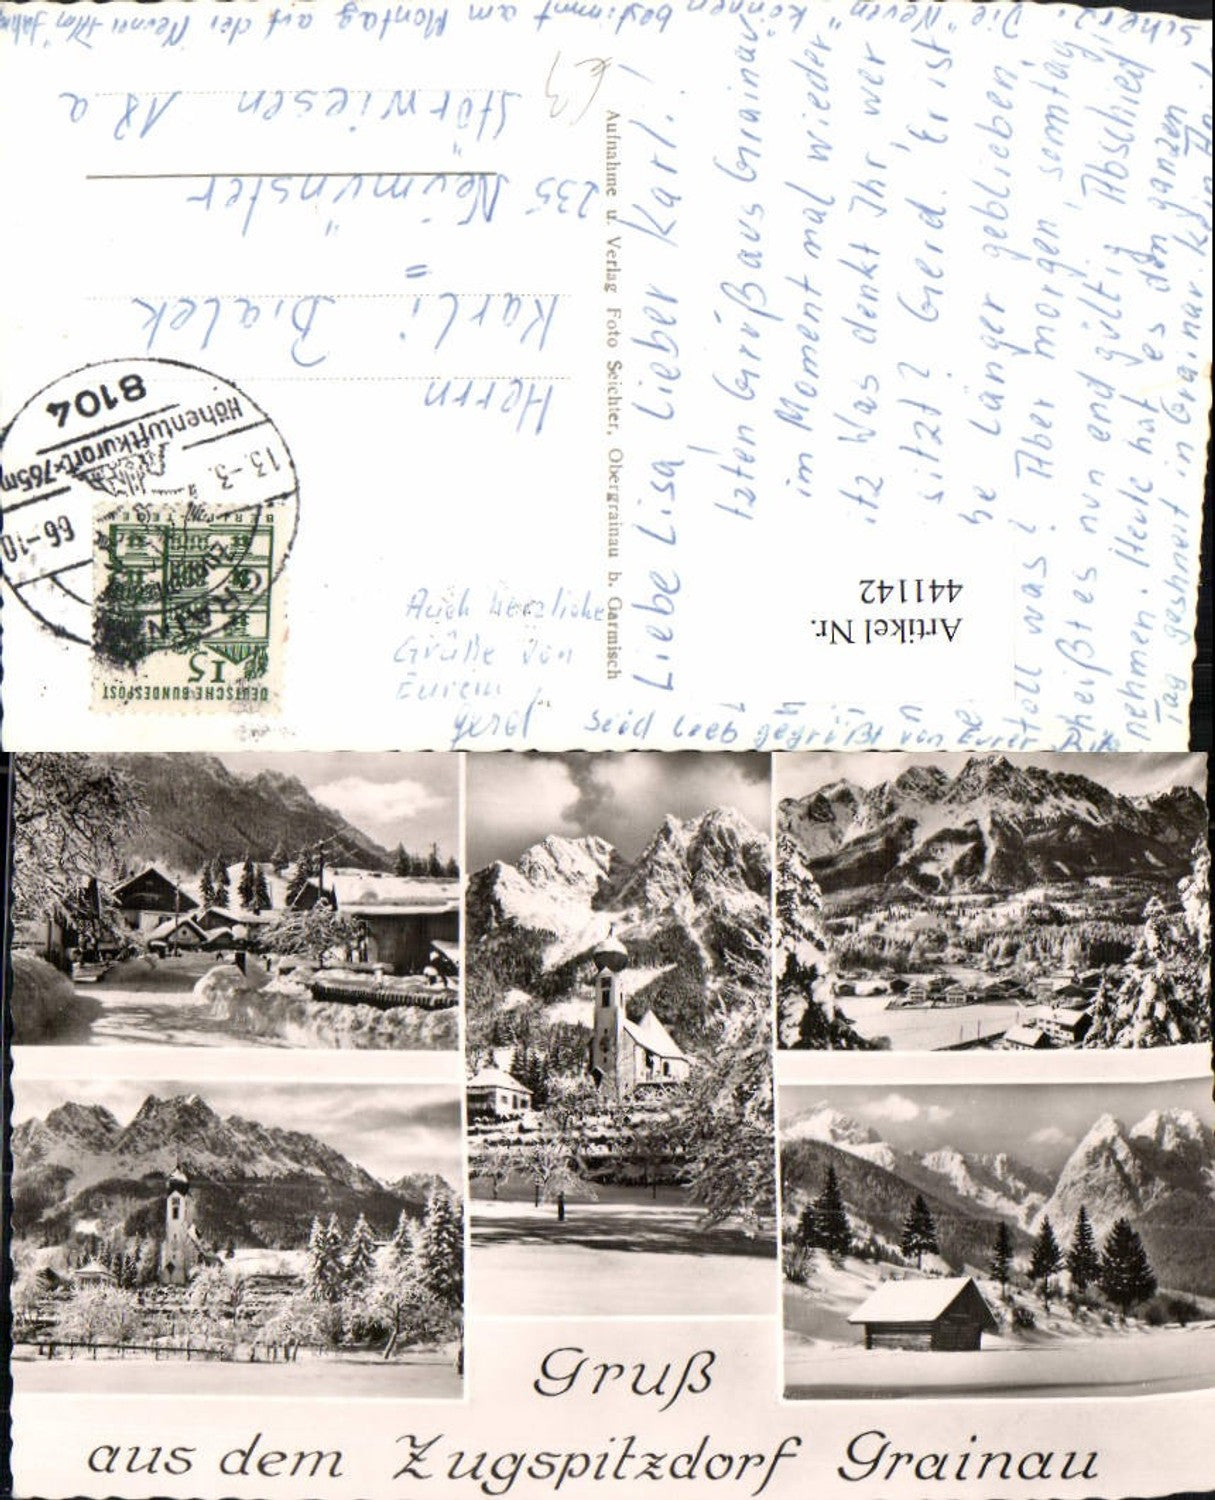 Herrn
Karli Bialek
235 Neümünster
Störwiesen 18a
Liebe Lisa Lieber Karl!
tzten Grüß aus Grainaü
im Moment mal wieder
itz Was denkt Ihr, wer
sitzt? Gerd. Er ist
he Länger geblieben.
toll was? Aber morgen, sonntag
heißt es nun end gültig Abschied
nehmen. Heute hat es den ganzen
Tag geschneit in Grainaü.
scherz. Die "Neuen" können bestimmt am Montag auf der
seid lieb gegrüßt von
Auch herzliche
Grüße von
Eurem
Gerd
Aufnahme u. Verlag Foto Seichter, Obergrainau b. Garmisch
Artikel Nr.
441142
8104
Höhenluftkurort·765m
13.-3.
66-10
15
DEUTSCHE BUNDESPOST
Gruß
aus dem Zugspitzdorf Grainau